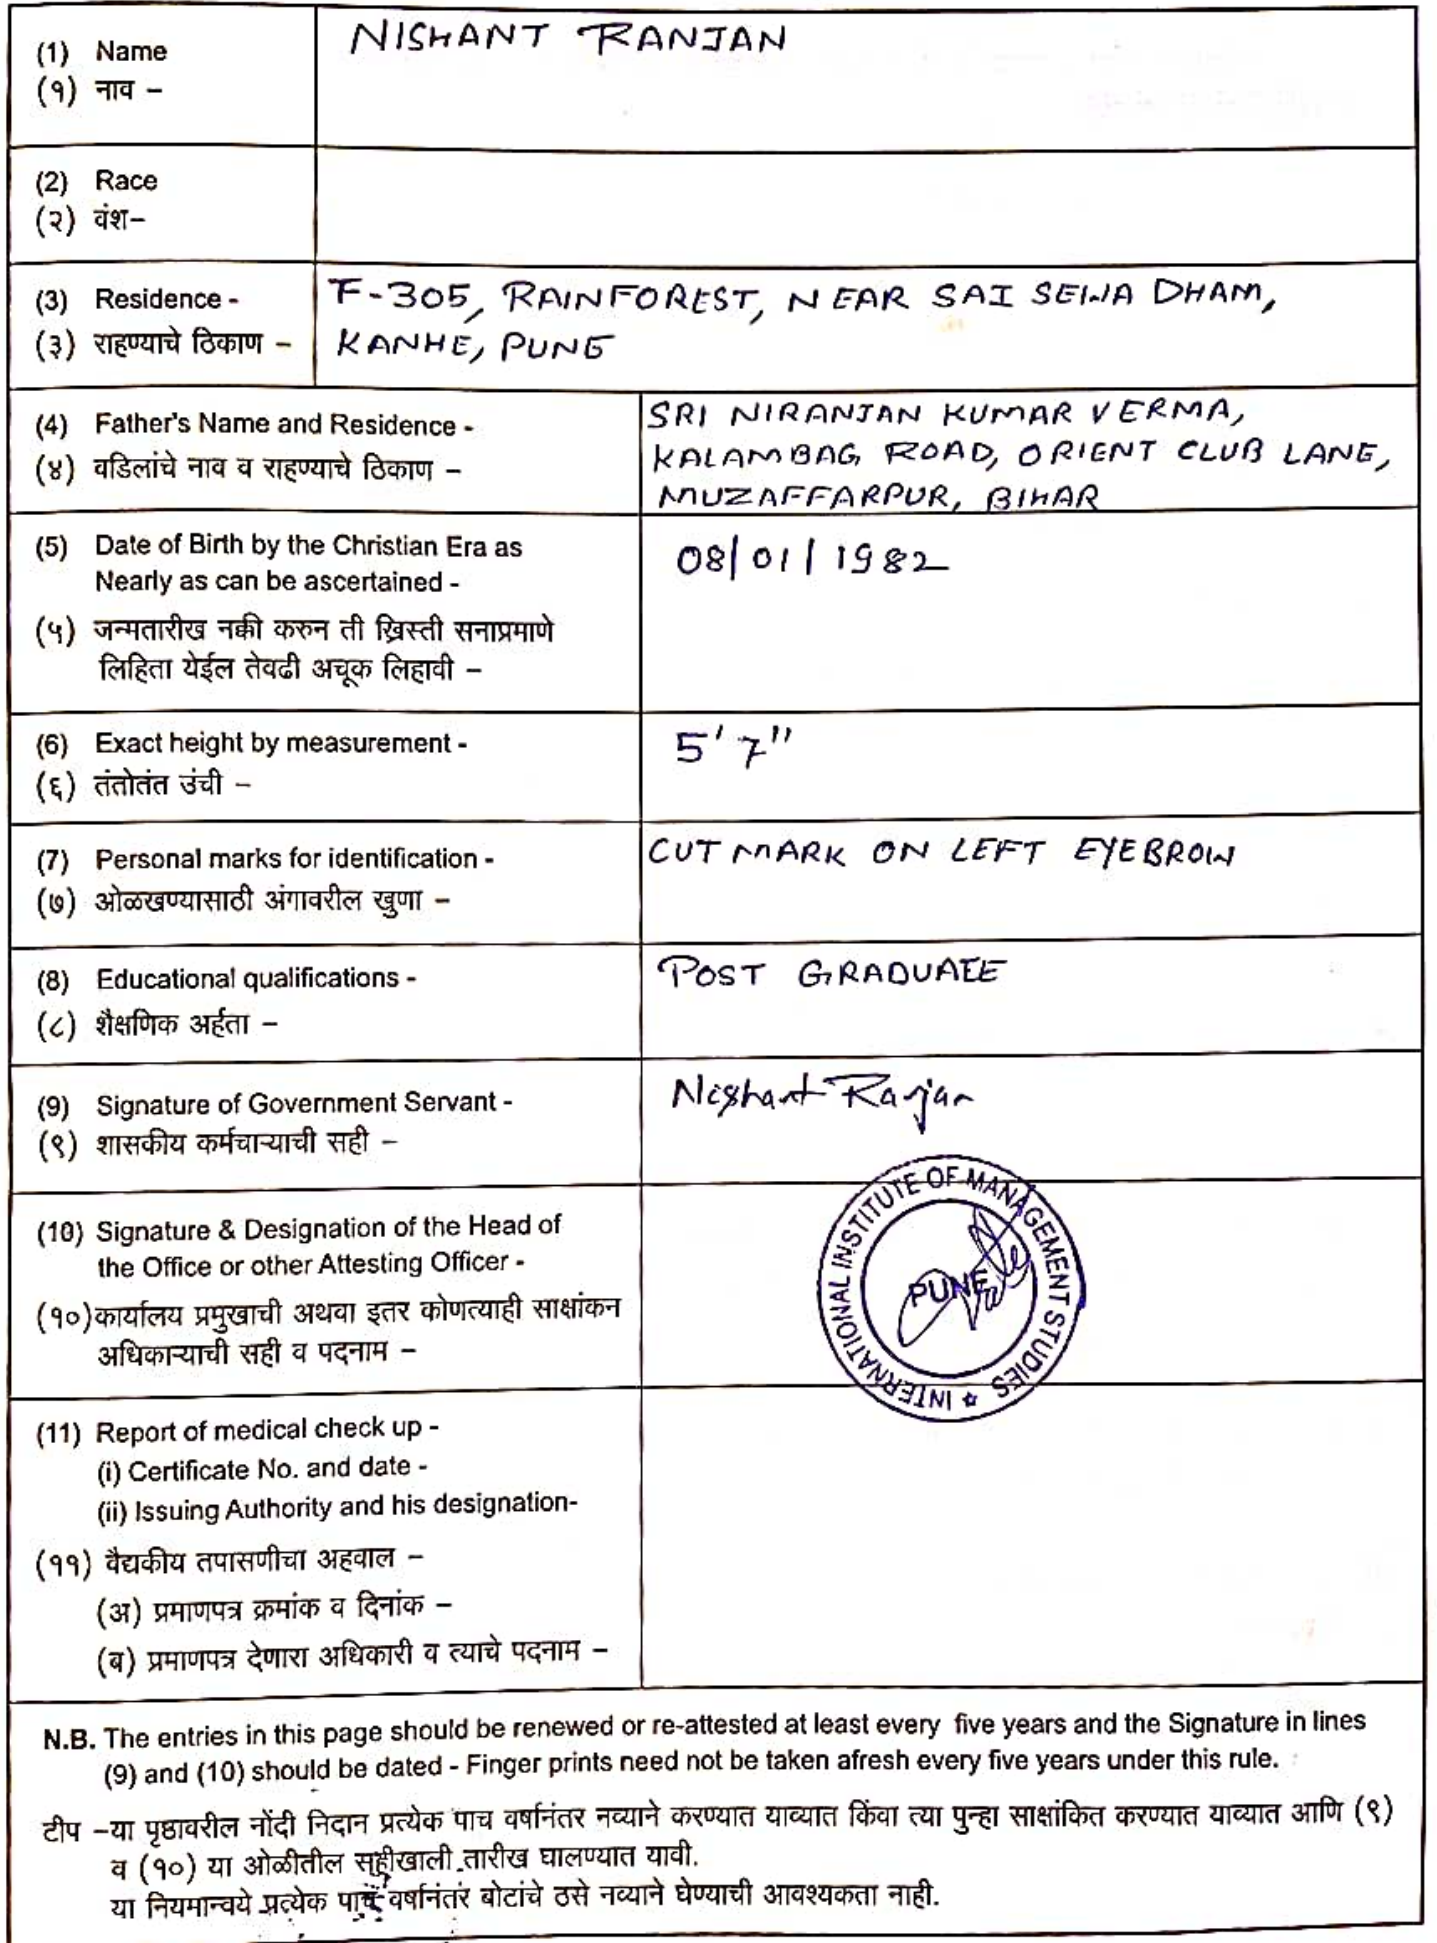 (1) Name
(१) नाव –
NISHANT RANJAN
(2) Race
(२) वंश–
(3) Residence -
(३) राहण्याचे ठिकाण –
F-305, RAINFOREST, NEAR SAI SEWA DHAM,
KANHE, PUNE
(4) Father's Name and Residence -
(४) वडिलांचे नाव व राहण्याचे ठिकाण –
SRI NIRANJAN KUMAR VERMA,
KALAMBAG ROAD, ORIENT CLUB LANE,
MUZAFFARPUR, BIHAR
(5) Date of Birth by the Christian Era as
Nearly as can be ascertained -
(५) जन्मतारीख नक्की करुन ती ख्रिस्ती सनाप्रमाणे
लिहिता येईल तेवढी अचूक लिहावी –
08/01/1982
(6) Exact height by measurement -
(६) तंतोतंत उंची –
5'7"
(7) Personal marks for identification -
(७) ओळखण्यासाठी अंगावरील खुणा –
CUT MARK ON LEFT EYEBROW
(8) Educational qualifications -
(८) शैक्षणिक अर्हता –
POST GRADUATE
(9) Signature of Government Servant -
(९) शासकीय कर्मचाऱ्याची सही –
Nishant Ranjan
(10) Signature & Designation of the Head of
the Office or other Attesting Officer -
(१०) कार्यालय प्रमुखाची अथवा इतर कोणत्याही साक्षांकन
अधिकाऱ्याची सही व पदनाम –
INTERNATIONAL INSTITUTE OF MANAGEMENT STUDIES
PUNE
(11) Report of medical check up -
(i) Certificate No. and date -
(ii) Issuing Authority and his designation-
(११) वैद्यकीय तपासणीचा अहवाल –
(अ) प्रमाणपत्र क्रमांक व दिनांक –
(ब) प्रमाणपत्र देणारा अधिकारी व त्याचे पदनाम –
N.B. The entries in this page should be renewed or re-attested at least every five years and the Signature in lines
(9) and (10) should be dated - Finger prints need not be taken afresh every five years under this rule.
टीप –या पृष्ठावरील नोंदी निदान प्रत्येक पाच वर्षानंतर नव्याने करण्यात याव्यात किंवा त्या पुन्हा साक्षांकित करण्यात याव्यात आणि (९)
व (१०) या ओळीतील सहीखाली तारीख घालण्यात यावी.
या नियमान्वये प्रत्येक पाच वर्षानंतर बोटांचे ठसे नव्याने घेण्याची आवश्यकता नाही.